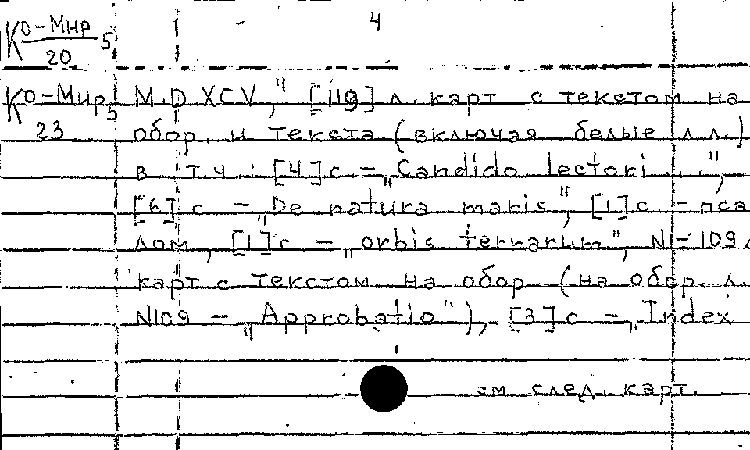 4
Ко-Мир 5
20
Ко-Мир 5 M.D.XCV," [119] л. карт с текстом на
23 обор. и текста (включая белые л.л.)
в т.ч.: [4] с – „Candido lectori...",
[6] с – „De natura maris", [1] с – пса
лом, [1] с – „orbis terrarum", N1-109 л.
карт с текстом на обор (на обор. л.
N109 – „Approbatio"), [3] с – „Index
см след. карт.